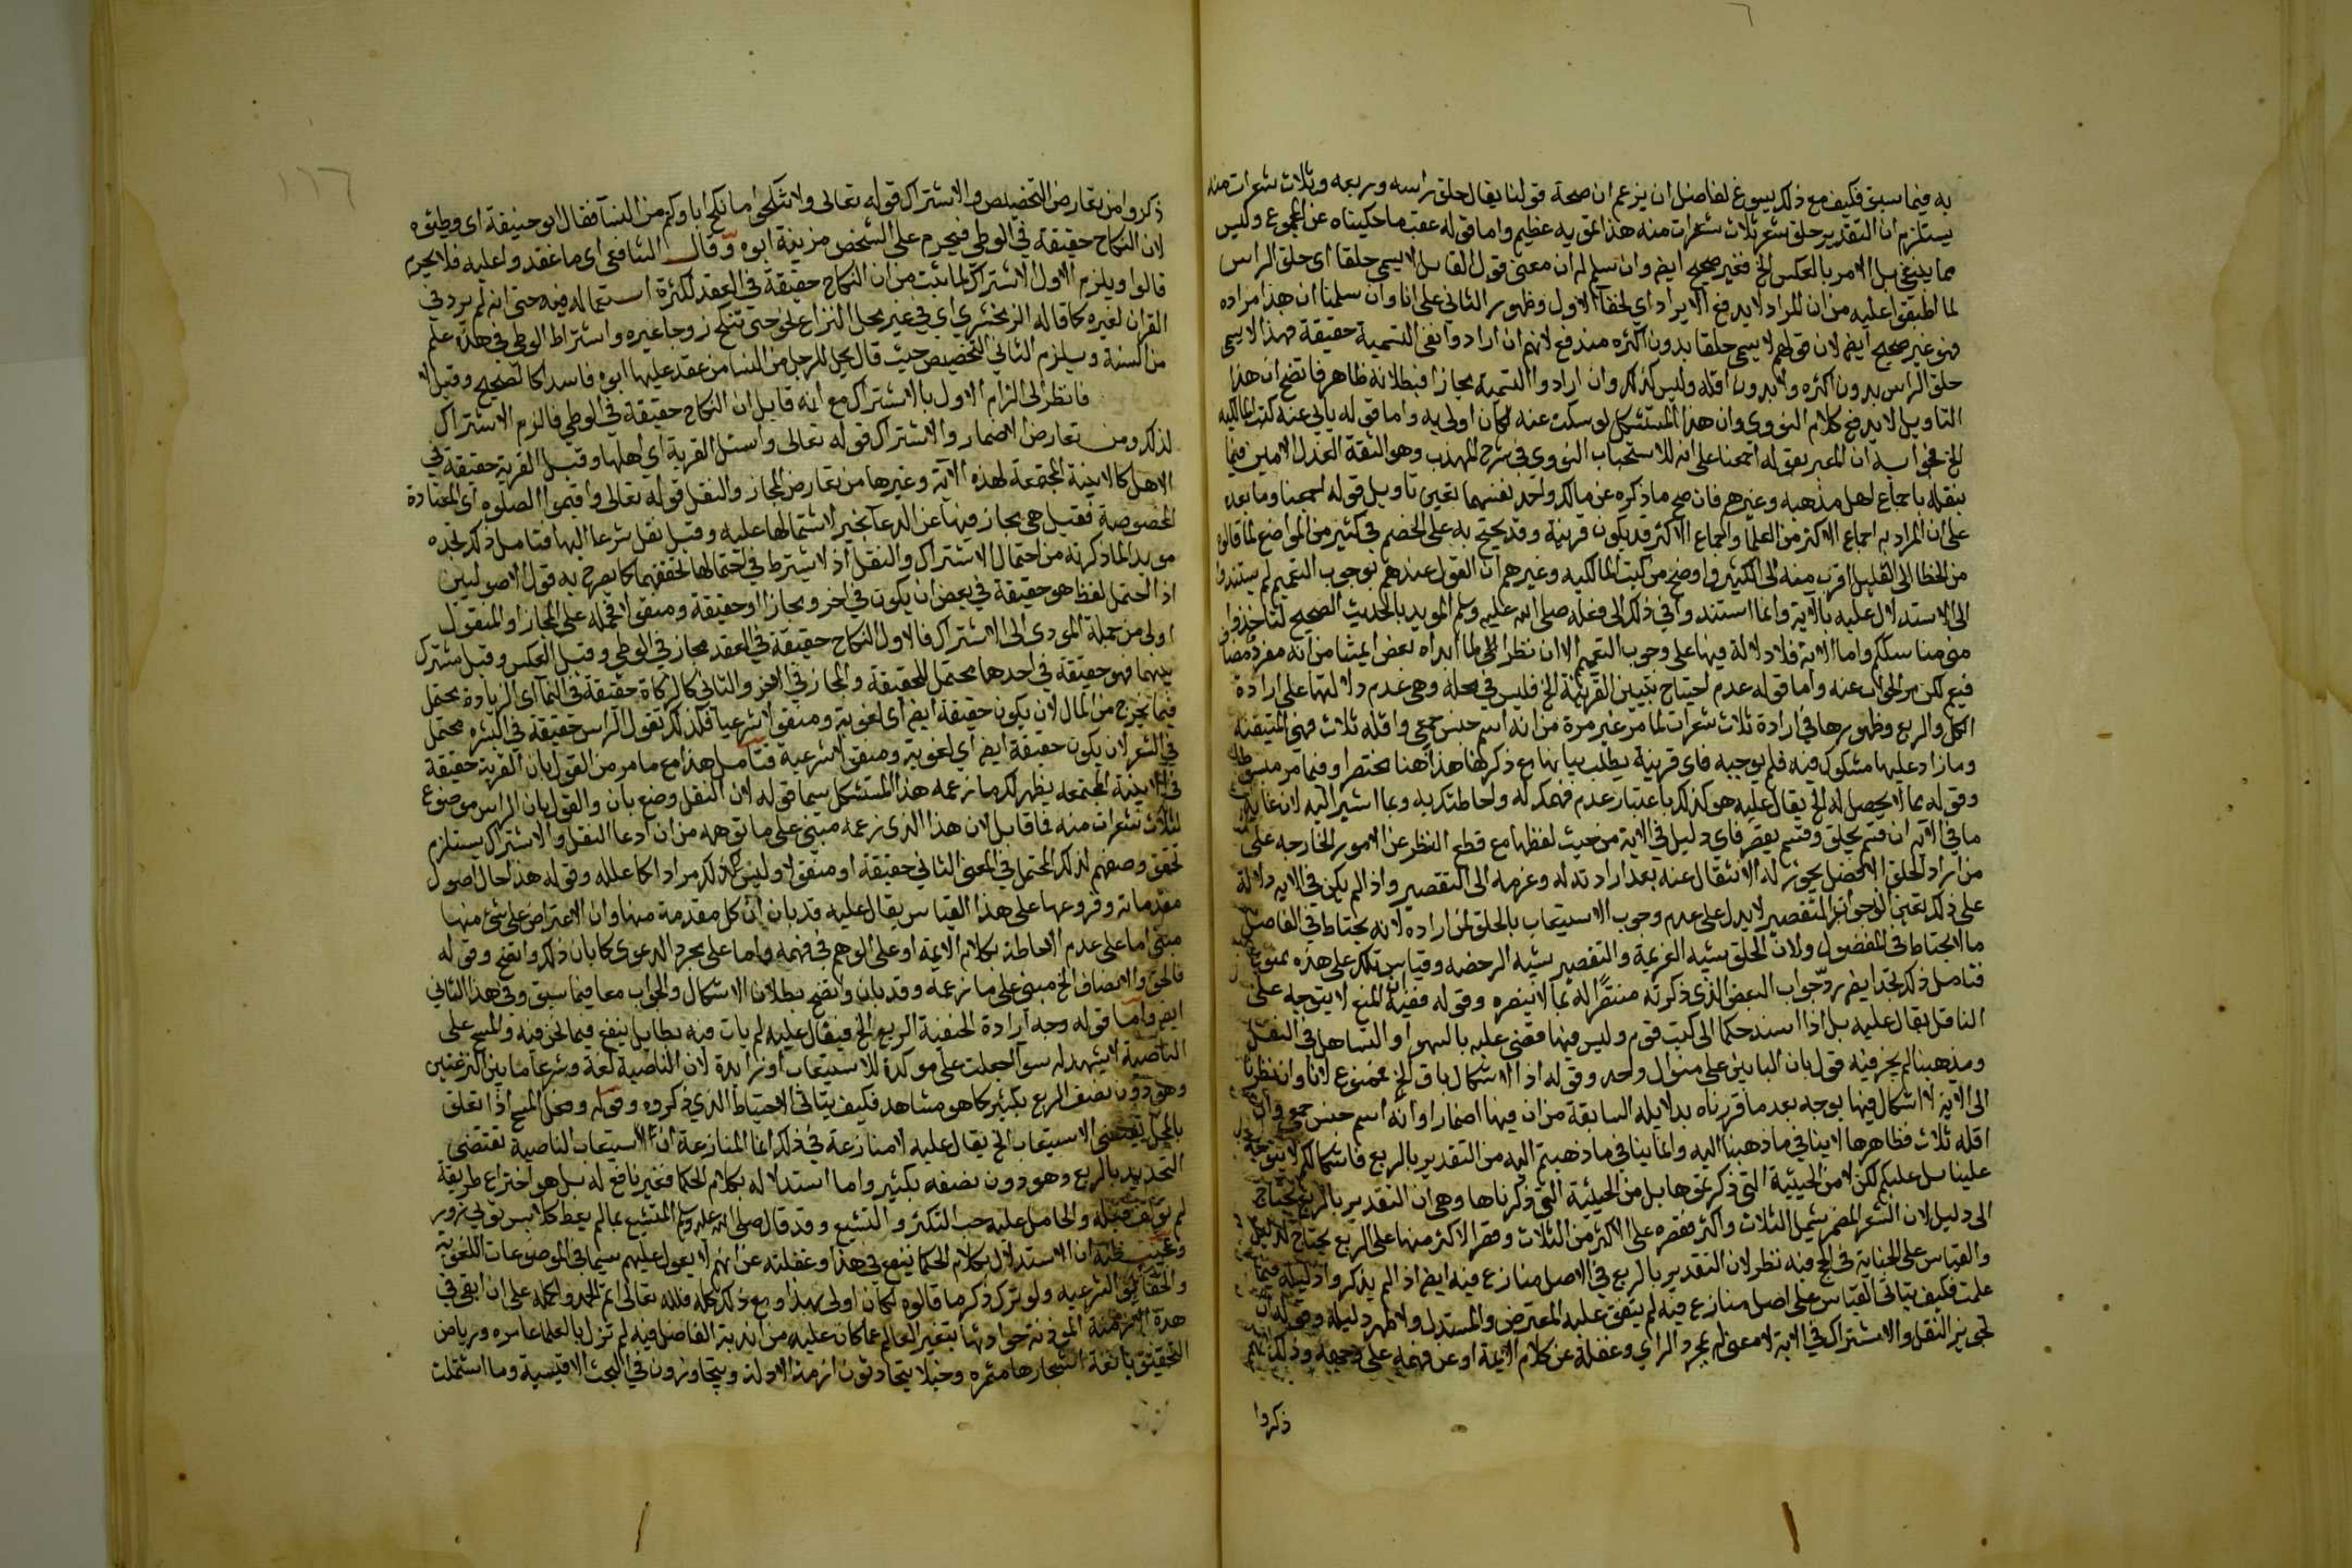 به فيما سبق فكيف مع ذلك يسوغ لفاضل ان يزعم ان صحة قولنا يقال حلق راسه وربعه وثلاث شعرات منه
يستلزم ان التقدير حلق شعر ثلاث شعرات منه هذا تمويه عظيم واما قوله عقب ما حكيناه عن المجموع وليس
مما ينبغي بل الامر بالعكس الخ فغير صحيح ايضا وان سلم له ان معنى قول القايل لا يسمى حلقا اى حلق الراس
لما اطبقوا عليه من ان المراد لا يدفع الايراد اي لخفآ الاول وظهور الثاني على انا وان سلمنا ان هذا مراده
فهو غير صحيح ايضا لان قولهم لا يسمى حلقا بدون اكثره مندفع لانهم ان ارادوا نفى التسمية حقيقة فهذا لا يسمى
حلق الراس بدون اكثره ولا بدون اقله وليس كذلك وان ارادوا التسمية مجازا فبطلانه ظاهر فاتضح ان هذا
التاويل لا يدفع كلام النووى وان هذا المستشكل لو سكت عنه لكان اولى به واما قوله يابى عنه كتب المالكيه
الخ فجوابه ان المعبر بقوله اجمعنا على انه للاستحباب النووى في شرح المهذب وهو الثقة العدل الامين فيما
ينقله باجماع اهل مذهبه وغيرهم فان صح ما ذكره عن مالك واحمد نفسهما تعين تاويل قوله اجمعنا وما بعده
على ان المراد به اجماع الاكثر من العلما واجماع الاكثر قد يكون قرينة وقد يحتج به على الخصم في كثير من المواضع لما قالوه
من الخطا الى القليل اقرب منه الى الكثير واوضح من كتب المالكيه وغيرهم ان القول عندهم بوجوب التعميم لم يستندوا
الى الاستدلال عليه بالاية وانما استندوا في ذلك الى فعله صلى الله عليه وسلم المويد بالحديث الصحيح لتاخذوا
عني مناسككم واما الاية فلا دلالة فيها على وجوب التعميم الا ان نظرا الى ما ابداه بعض ايمتنا من انه مفرد مضاف
فيعم لكن مر الجواب عنه واما قوله عدم احتياج تبيين القرينة الخ فليس في محله وهى عدم دلالتها على ارادة
الكل والربع وظهورها في ارادة ثلاث شعرات لما مر غير مرة من انه اسم جنس جمعى واقله ثلاث فهى المتيقنة
وما زاد عليها مشكوك فيه فلم يوجبه فاى قرينة يطلب بيانها مع ذكرنا لها هذا هنا مختصرا وفيما مر مبسوطا
وقوله بما لا يحصل له الخ يقال عليه هو كذلك باعتبار عدم فهمك له واحاطتك به وبما اشير اليه لان غاية
ما في الاية ان قسم يحلق وقسم يقصر فاى دليل في الاية من حيث لفظها مع قطع النظر عن الامور الخارجه على
من اراد الحلق الافضل يجوز له الانتقال عنه بعد ارادته له وعزمه الى التقصير واذا لم يكن في الاية دلالة
على ذلك تعين الوجوب المتقصير لا يدل على عدم وجوب الاستيعاب بالحلق لمن اراده لانه يحتاط في الفاضل
ما لا يحتاط في المفضول ولان الحلق يشبه العزيمة والتقصير يشبه الرخصه وقياس تلك على هذه ممنوع
فتامل ذلك تجد ايضا رد جواب البعض الذى ذكرته منتصرا له بما لا ينصره وقوله فقيه ان المنع لا يتوجه على
الناقل يقال عليه بل اذا اسند حكما الى كتب قوم وليس فيها قضى عليه بالسهو او التساهل في النقل
ومذهبنا لم يجز فيه قول بان الباين على منوال واحد وقوله اذا الاشكال باق الخ ممنوع لانا وان نظرنا
الى الاية لا اشكال فيها بوجه بعد ما قررناه بدلايله السابقة من ان فيها اضمارا وانه اسم جنس جمعي وان
اقله ثلاث فظاهرها لا ينافي ما ذهبنا اليه وانما ينافي ما ذهبتم اليه من التقدير بالربع فاشكالكم لا يتوجه
علينا بل عليكم لكن لا من الحيثية التي ذكرتموها بل من الحيثية التي ذكرناها وهي ان التقدير بالربع يحتاج
الى دليل لان الشعر المضمر يشمل الثلاث واكثر فقصره على الاكثر من الثلاث وقصر الاكثر منها على الربع يحتاج لدليل
والقياس على الجناية في الحج فيه نظر لان التقدير بالربع في الاصل منازع فيه ايضا اذ لم يذكروا دليله فيما
علمت فكيف يتاتى القياس على اصل منازع فيه لم يتفق عليه المعترض والمستدل ولا ظهر دليله وقوله ان
تجويز النقل والاشتراك في الاية لا معنى له مجرد الراي وغفلة عن كلام الايمة او عن فهمه على وجهه وذلك انهم
ذكروا
١٦٦
ذكروا من تعارض التخصيص والاشتراك قوله تعالى ولا تنكحوا ما نكح اباوكم من النسآ فقال ابو حنيفة اى وطئوه
لان النكاح حقيقة في الوطي فيحرم على الشخص مزنية ابوه وقال الشافعى اى ما عقدوا عليه فلا يحرم
قالوا ويلزم الاول الاشتراك لما ثبت من ان النكاح حقيقة في العقد لكثرة استعماله فيه حتى انه لم يرد في
القران لغيره كما قاله الزمخشرى اي في غير محل النزاع نحو حتى تنكح زوجا غيره واشتراط الوطى في هذه علم
من السنة ويلزم الثاني التخصيص حيث قال يحل للرجل من النسا من عقد عليها ابوه فاسدا كالصحيح وقيل لا
فانظر الى الزام الاول بالاشتراك مع انه قايل ان النكاح حقيقة في الوطى فالزم الاشتراك
لذلك ومن تعارض الاضمار والاشتراك قوله تعالى واسئل القرية اى اهلها وقيل القرية حقيقة في
الاهل كالابنية المجتمعة لهذه الآية وغيرها من تعارض المجاز والنقل قوله تعالى واقيموا الصلوه اى المعتادة
المخصوصة فقيل هى مجاز فيها عن الدعآ بخير لاشتمالها عليه وقيل نقل شرعا اليها فتامل ذلك تجده
مويدا لما ذكرته من احتمال الاشتراك والنقل اذ لا يشترط في احتمالها تحققهما كما يصرح به قول الاصوليين
اذا احتمل لفظ هو حقيقة في بعض ان يكون في اخر ومجازا او حقيقة ومنقولا فحمله على المجاز او المنقول
اولى من حملة المودى الى الاشتراك فالاول النكاح حقيقة في العقد مجاز في الوطى وقيل العكس وقيل مشترك
بينهما فهو حقيقة في احدهما محتمل للحقيقة والمجاز في الاخر والثاني كالزكاة حقيقة في النمآ اى الزيادة يحتمل
فيما يخرج من المال لان يكون حقيقة ايضا اى لغوية ومنقولا شرعيا فكذلك تقول الراس حقيقة في البشره محتمل
في الشعر لان يكون حقيقة ايضا اي لغوية ومنقولا شرعية فتامل هذا مع ما مر من القول بان القرية حقيقة
في الابنية المجتمعه يظهر لك ما زعمه هذا المستشكل سيما قوله لان النقل وضع بان والقول بان الراس موضوع
لثلاث شعرات منه فما قايل لان هذا الذى زعمه مبتنى على ما توهمه من ان ادعا النقل والاشتراك يستلزم
تحقق وصفهم لذلك المحتمل في المعنى الثاني حقيقة او منقولا وليس كذلك مرادا كما علمته وقوله هذا حال اصول
مقدماته وفروعها على هذا القياس يقال عليه قد بان ان كل مقدمة منها وان الاعتراض على شئ منها
مبنى اما على عدم الاحاطة بكلام الايمة او على الوهم في فهمه واما على مجرد الدعوى كما بان ذلك واتضح وقوله
فالحق والانصاف الخ مبنى على ما زعمه وقد بان واتضح بطلان الاشكال والجواب معا فيما سبق وفي هذا الثاني
ايضا واما قوله وجه ارادة الحنفية الربع الخ فيقال عليه لم يات فيه بطايل ينفع فيما نحن فيه والمسح على
الناصية لا يشهد له سوآ جعلت على موكدة للاستيعاب او زايدة لان الناصية لغة وشرعا ما بين النزعتين
وهو دون نصف الربع بكثير كما هو مشاهد فكيف يتاتى الاحتياط الذي ذكروه وقوله ومحل المسح اذا تعلق
بالمحل يقتضى الاستيعاب الخ يقال عليه لا منازعة في ذلك انما المنازعة ان الاستيعاب الناصية تقتضى
التحديد بالربع وهو دون نصفه بكثير واما استدلاله بكلام الحكما فغير نافع له بل هو اختراع طريقة
لم تولف قبله والحامل عليه حب التكثر والتشبع وقد قال صلى الله عليه وسلم المتشبع بما لم يعط كلابس ثوبي زور
ان الاستدلال بكلام الحكما ينفع في هذا وغفلته عن انهم لا يعول عليهم سيما في الموضوعات اللغويه
والحقايق الشرعيه ولو ترك ذكر ما قالوه لكان اولى بهذا ومع ذلك كله فلله تعالى اتم الحمد واكمله على ان ابقى في
هذه الازمنة الموذنة حوادثها بتغير العالم عما كان عليه من اندية الفاضل فيه لم تزل بالعلما عامره ورياض
التحقيق يانعة اشجارها مثمره وخيلا يتجاذبون ازمة الادلة ويتجاوزون في البحث الاقيسية وما اشتملت